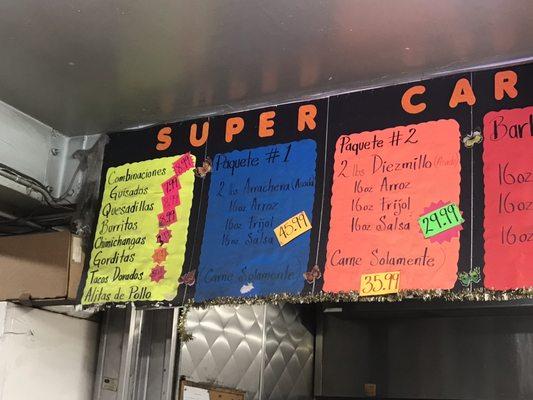 SUPER CAR
Combinaciones
Guisados
Quesadillas
Burritos
Chimichangas
Gorditas
Tacos Dorados
Alitas de Pollo
Paquete #1
2 lbs Arrachera (Asada)
16oz Arroz
16oz Frijol
16oz Salsa
45.99
Carne Solamente
Paquete #2
2 lbs Diezmillo (Asado)
16oz Arroz
16oz Frijol
16oz Salsa
29.99
Carne Solamente
35.99
Barb
16oz
16oz
16oz